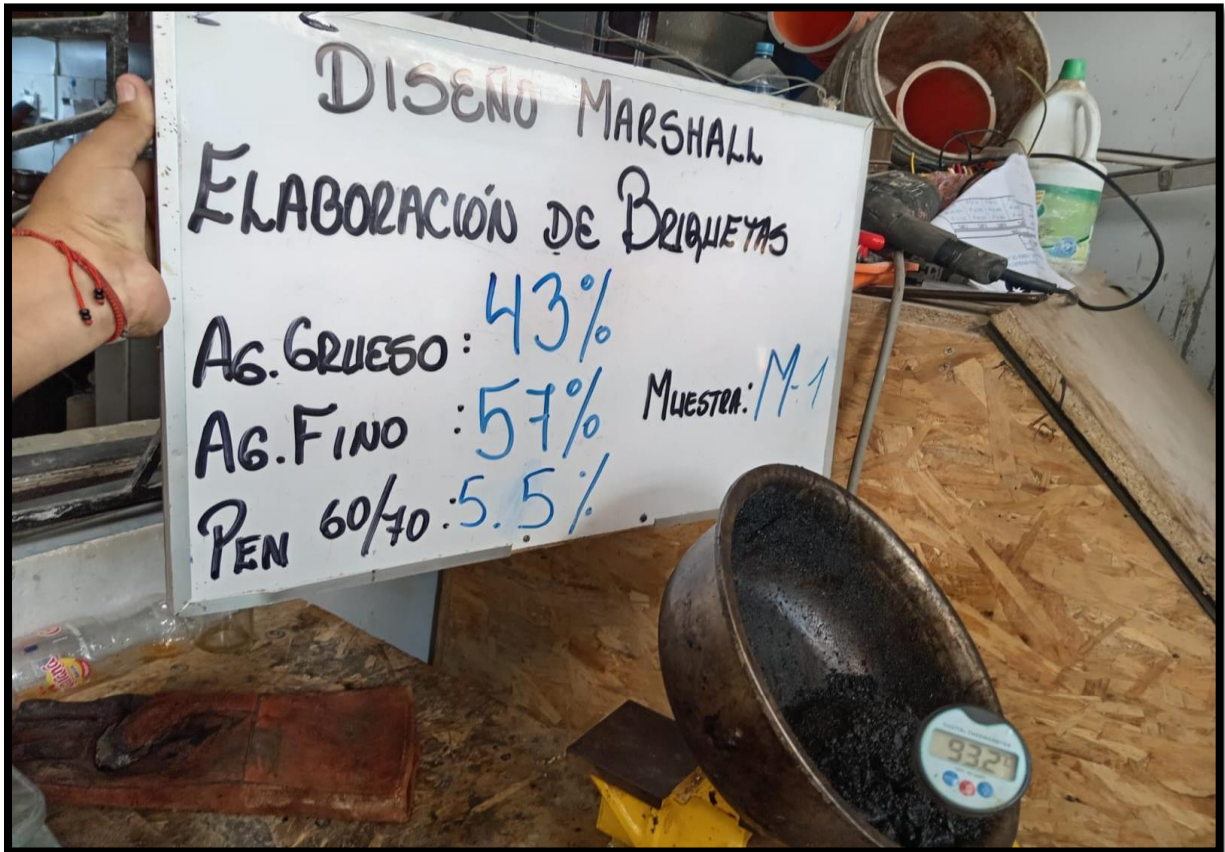 DISEÑO MARSHALL
ELABORACIÓN DE BRIQUETAS
AG. GRUESO: 43%
AG. FINO : 57%
MUESTRA: M-1
PEN 60/70 : 5.5%
93.2°